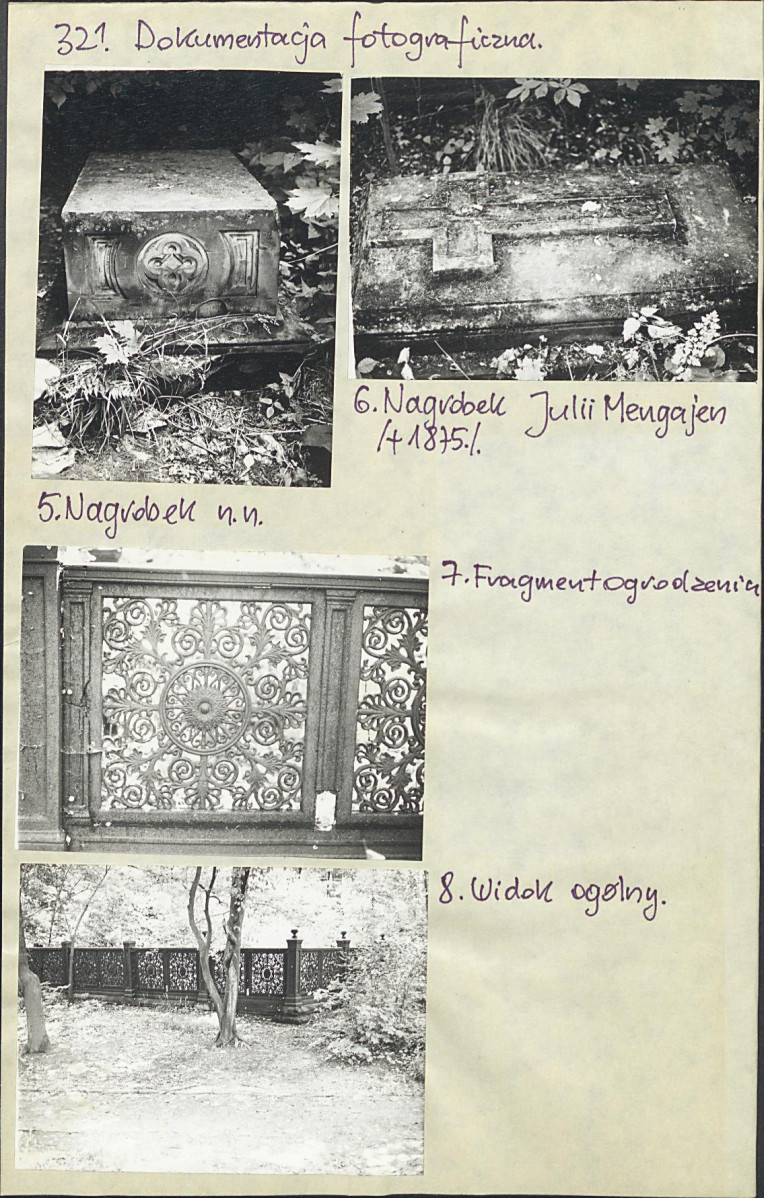 321. Dokumentacja fotograficzna.
6. Nagrobek Julii Mengajen
/+ 1875./.
5. Nagrobek n.n.
7. Fragment ogrodzenia
8. Widok ogólny.